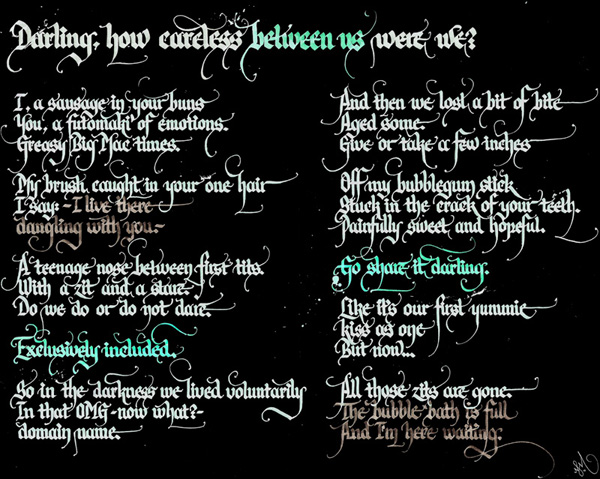 Darling, how careless between us were we?
I, a sausage in your buns
You, a futomaki of emotions.
Greasy Big Mac times.
My brush, caught in your one hair
I say: -I live there
dangling with you.-
A teenage nose between first tits.
With a zit and a stare.
Do we do or do not dare.
Exclusively included.
So in the darkness we lived voluntarily
In that OMG -now what?-
domain name.
And then we lost a bit of bite
Aged some.
Give or take a few inches
Off my bubblegum stick
Stuck in the crack of your teeth.
Painfully sweet and hopeful.
Go share it darling.
Like it's our first yummie
kiss as one
But now...
All those zits are gone.
The bubble bath is full
And I'm here waiting.